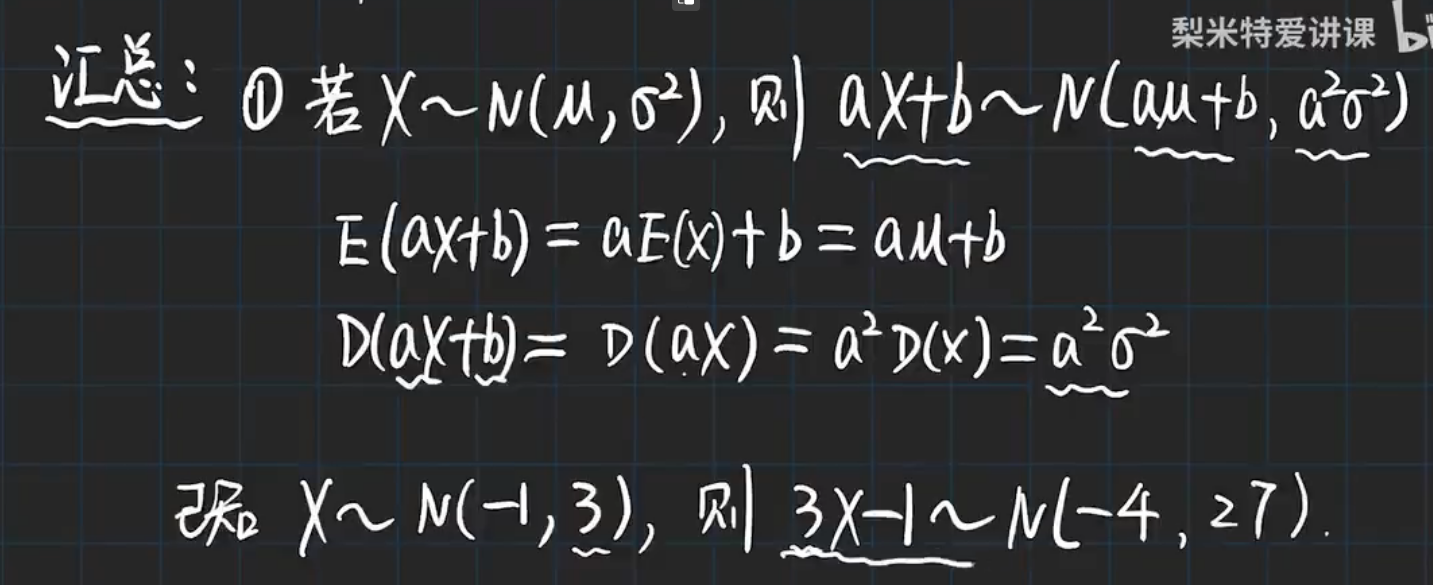 梨米特爱讲课 bi
汇总: ① 若 X~N(μ,σ²), 则 aX+b~N(aμ+b, a²σ²)
E(aX+b) = aE(X)+b = aμ+b
D(aX+b) = D(aX) = a²D(X) = a²σ²
已知 X~N(-1,3), 则 3X-1~N(-4, 27).